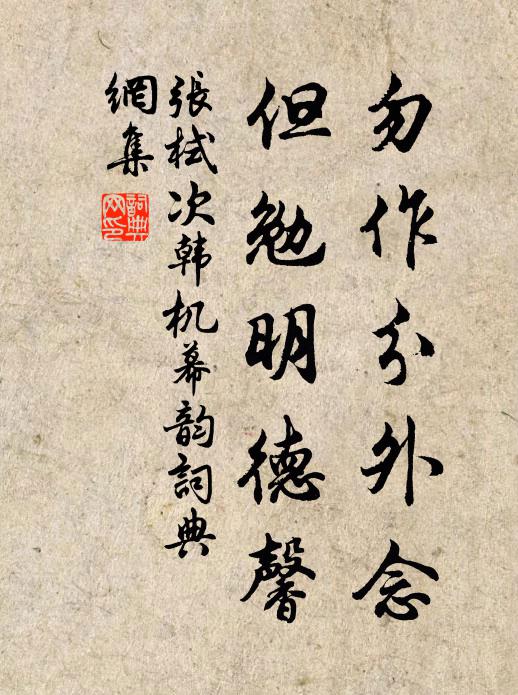 勿作分外念
但勉明德馨
張栻次韩机幕韵詞典
網集
詞典
网印